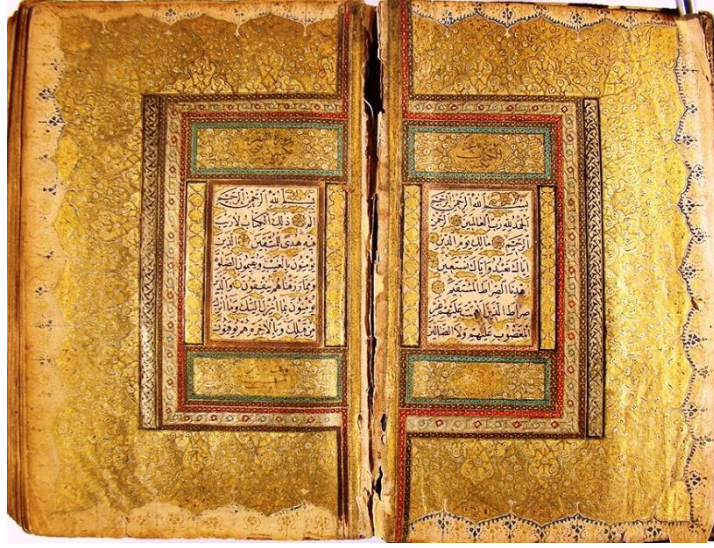 بسم الله الرحمن الرحيم
الحمد لله رب العالمين الرحمن
الرحيم مالك يوم الدين
اياك نعبد واياك نستعين
اهدنا الصراط المستقيم
صراط الذين انعمت عليهم غير
المغضوب عليهم ولا الضالين
بسم الله الرحمن الرحيم
الم ذلك الكتاب لا ريب
فيه هدى للمتقين الذين
يؤمنون بالغيب ويقيمون الصلوة
ومما رزقناهم ينفقون والذين
يؤمنون بما انزل اليك وما انزل
من قبلك وبالاخرة هم يوقنون